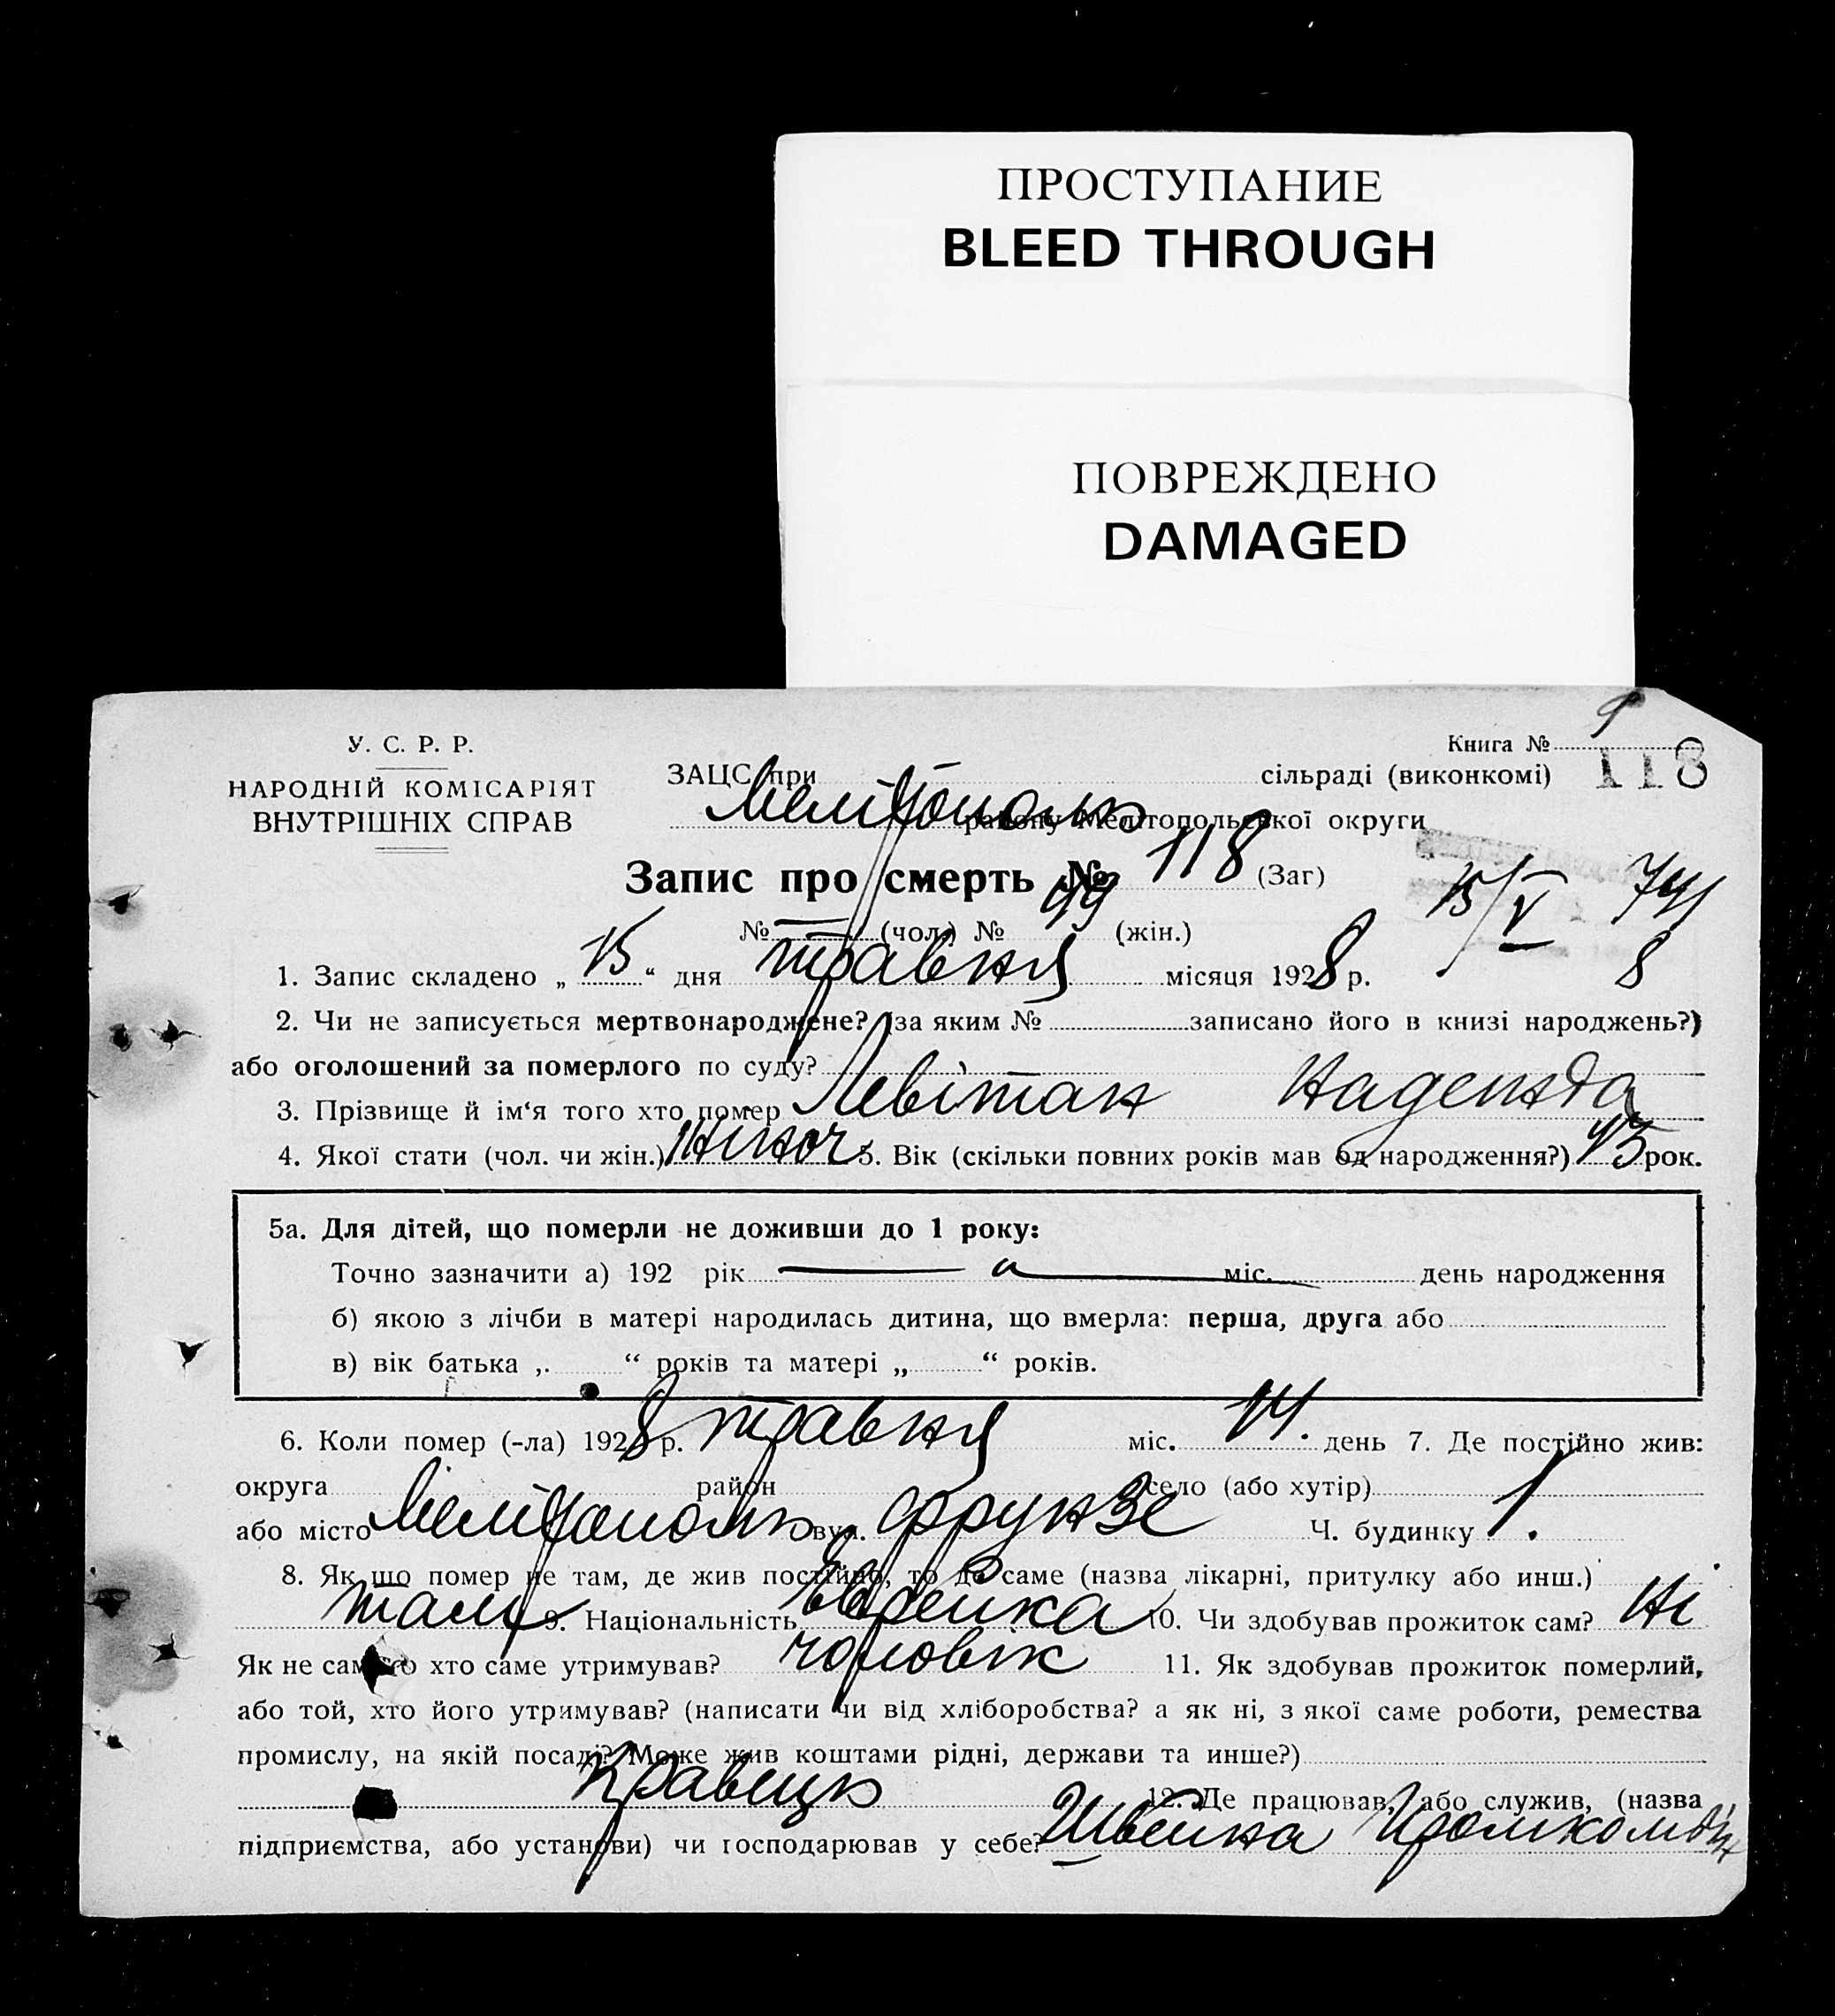 ПРОСТУПАНИЕ
BLEED THROUGH
ПОВРЕЖДЕНО
DAMAGED
У. С. Р. Р.
НАРОДНІЙ КОМІСАРІЯТ
ВНУТРІШНІХ СПРАВ
Книга № 9
118
ЗАЦС при сільраді (виконкомі)
Мелітополь району Мелітопольської округи
Запис про смерть № 118 (Заг)
№ — (чол.) № 49 (жін.)
15/V
8
1. Запис складено „ 15 “ дня травня місяця 1928 р.
2. Чи не записується мертвонароджене? (за яким № записано його в книзі народжень?)
або оголошений за померлого по суду?
3. Прізвище й ім‘я того хто помер Левітан Надежда
4. Якої стати (чол. чи жін.) жіноч 5. Вік (скільки повних років мав од народження?) 43 рок.
5а. Для дітей, що померли не доживши до 1 року:
Точно зазначити а) 192 рік міс. день народження
б) якою з лічби в матері народилась дитина, що вмерла: перша, друга або
в) вік батька „ “ років та матері „ “ років.
6. Коли помер (-ла) 1928 р. травня міс. 14. день 7. Де постійно жив:
округа район село (або хутір)
або місто Мелітополь вул. Фрунзе Ч. будинку 1.
8. Як що помер не там, де жив постійно, то де саме (назва лікарні, притулку або инш.)
там 9. Національність Еврейка 10. Чи здобував прожиток сам? Ні
Як не сам то хто саме утримував? чоловік 11. Як здобував прожиток померлий,
або той, хто його утримував? (написати чи від хліборобства? а як ні, з якої саме роботи, ремества
промислу, на якій посаді? Може жив коштами рідні, держави та инше?)
Кравець 12. Де працював, або служив, (назва
підприємства, або установи) чи господарював у себе? Швейна Промкомбін